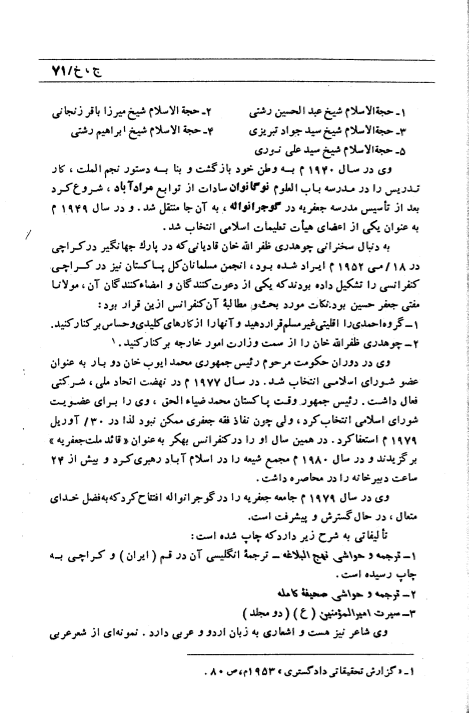 ج، خ/۷۱
۱ـ حجة‌الاسلام شیخ عبدالحسین رشتی ۲ـ حجة الاسلام شیخ میرزا باقر زنجانی
۳ـ حجة‌الاسلام شیخ سید جواد تبریزی ۴ـ حجة الاسلام شیخ ابراهیم رشتی
۵ـ حجة‌الاسلام شیخ سید علی نوری
وی در سال ۱۹۴۰ م به وطن خود بازگشت و بنا به دستور نجم الملت، کار
تدریس را در مدرسه باب العلوم نوگانوان سادات از توابع مرادآباد، شروع کرد
بعد از تأسیس مدرسه جعفریه در گوجرانواله، به آن جا منتقل شد. و در سال ۱۹۴۹ م
به عنوان یکی از اعضای هیأت تعلیمات اسلامی انتخاب شد.
به دنبال سخنرانی چوهدری ظفرالله خان قادیانی که در پارك جهانگیر در کراچی
در ۱۸/می ۱۹۵۲ م ایراد شده بود، انجمن مسلمانان کل پاکستان نیز در کراچی
کنفرانسی را تشکیل داده بودند که یکی از دعوت کنندگان و امضاء کنندگان آن، مولانا
مفتی جعفر حسین بود. نکات مورد بحث و مطالبهٔ آن کنفرانس ازین قرار بود:
۱ـ گروه احمدی را اقلیتی غیر مسلم قرار دهید و آنها را از کارهای کلیدی و حساس بر کنار کنید.
۲ـ چوهدری ظفرالله خان را از سمت وزارت امور خارجه بر کنار کنید. ۱
وی در دوران حکومت مرحوم رئیس جمهوری محمد ایوب خان دو بار به عنوان
عضو شورای اسلامی انتخاب شد. در سال ۱۹۷۷ م در نهضت اتحاد ملی، شرکتی
فعال داشت. رئیس جمهور وقت پاکستان محمد ضیاء الحق، وی را برای عضویت
شورای اسلامی انتخاب کرد، ولی چون نفاذ فقه جعفری ممکن نبود لذا در ۳۰/ آوریل
۱۹۷۹ م استعفا کرد. در همین سال او را در کنفرانس بهکر به عنوان «قائد ملت جعفریه»
برگزیدند و در سال ۱۹۸۰ م مجمع شیعه را در اسلام آباد رهبری کرد و بیش از ۲۴
ساعت دبیرخانه را در محاصره داشت.
وی در سال ۱۹۷۹ م جامعه جعفریه را در گوجرانواله افتتاح کرد که به فضل خدای
متعال، در حال گسترش و پیشرفت است.
تألیفاتی به شرح زیر دارد که چاپ شده است:
۱ـ ترجمه و حواشی نهج البلاغه ـ ترجمهٔ انگلیسی آن در قم (ایران) و کراچی به
چاپ رسیده است.
۲ـ ترجمه و حواشی صحیفهٔ کامله
۳ـ سیرت امیرالمؤمنین (ع) (دو مجلد)
وی شاعر نیز هست و اشعاری به زبان اردو و عربی دارد. نمونه‌ای از شعر عربی
۱ـ «گزارش تحقیقاتی دادگستری» ۱۹۵۳م، ص ۸۰.